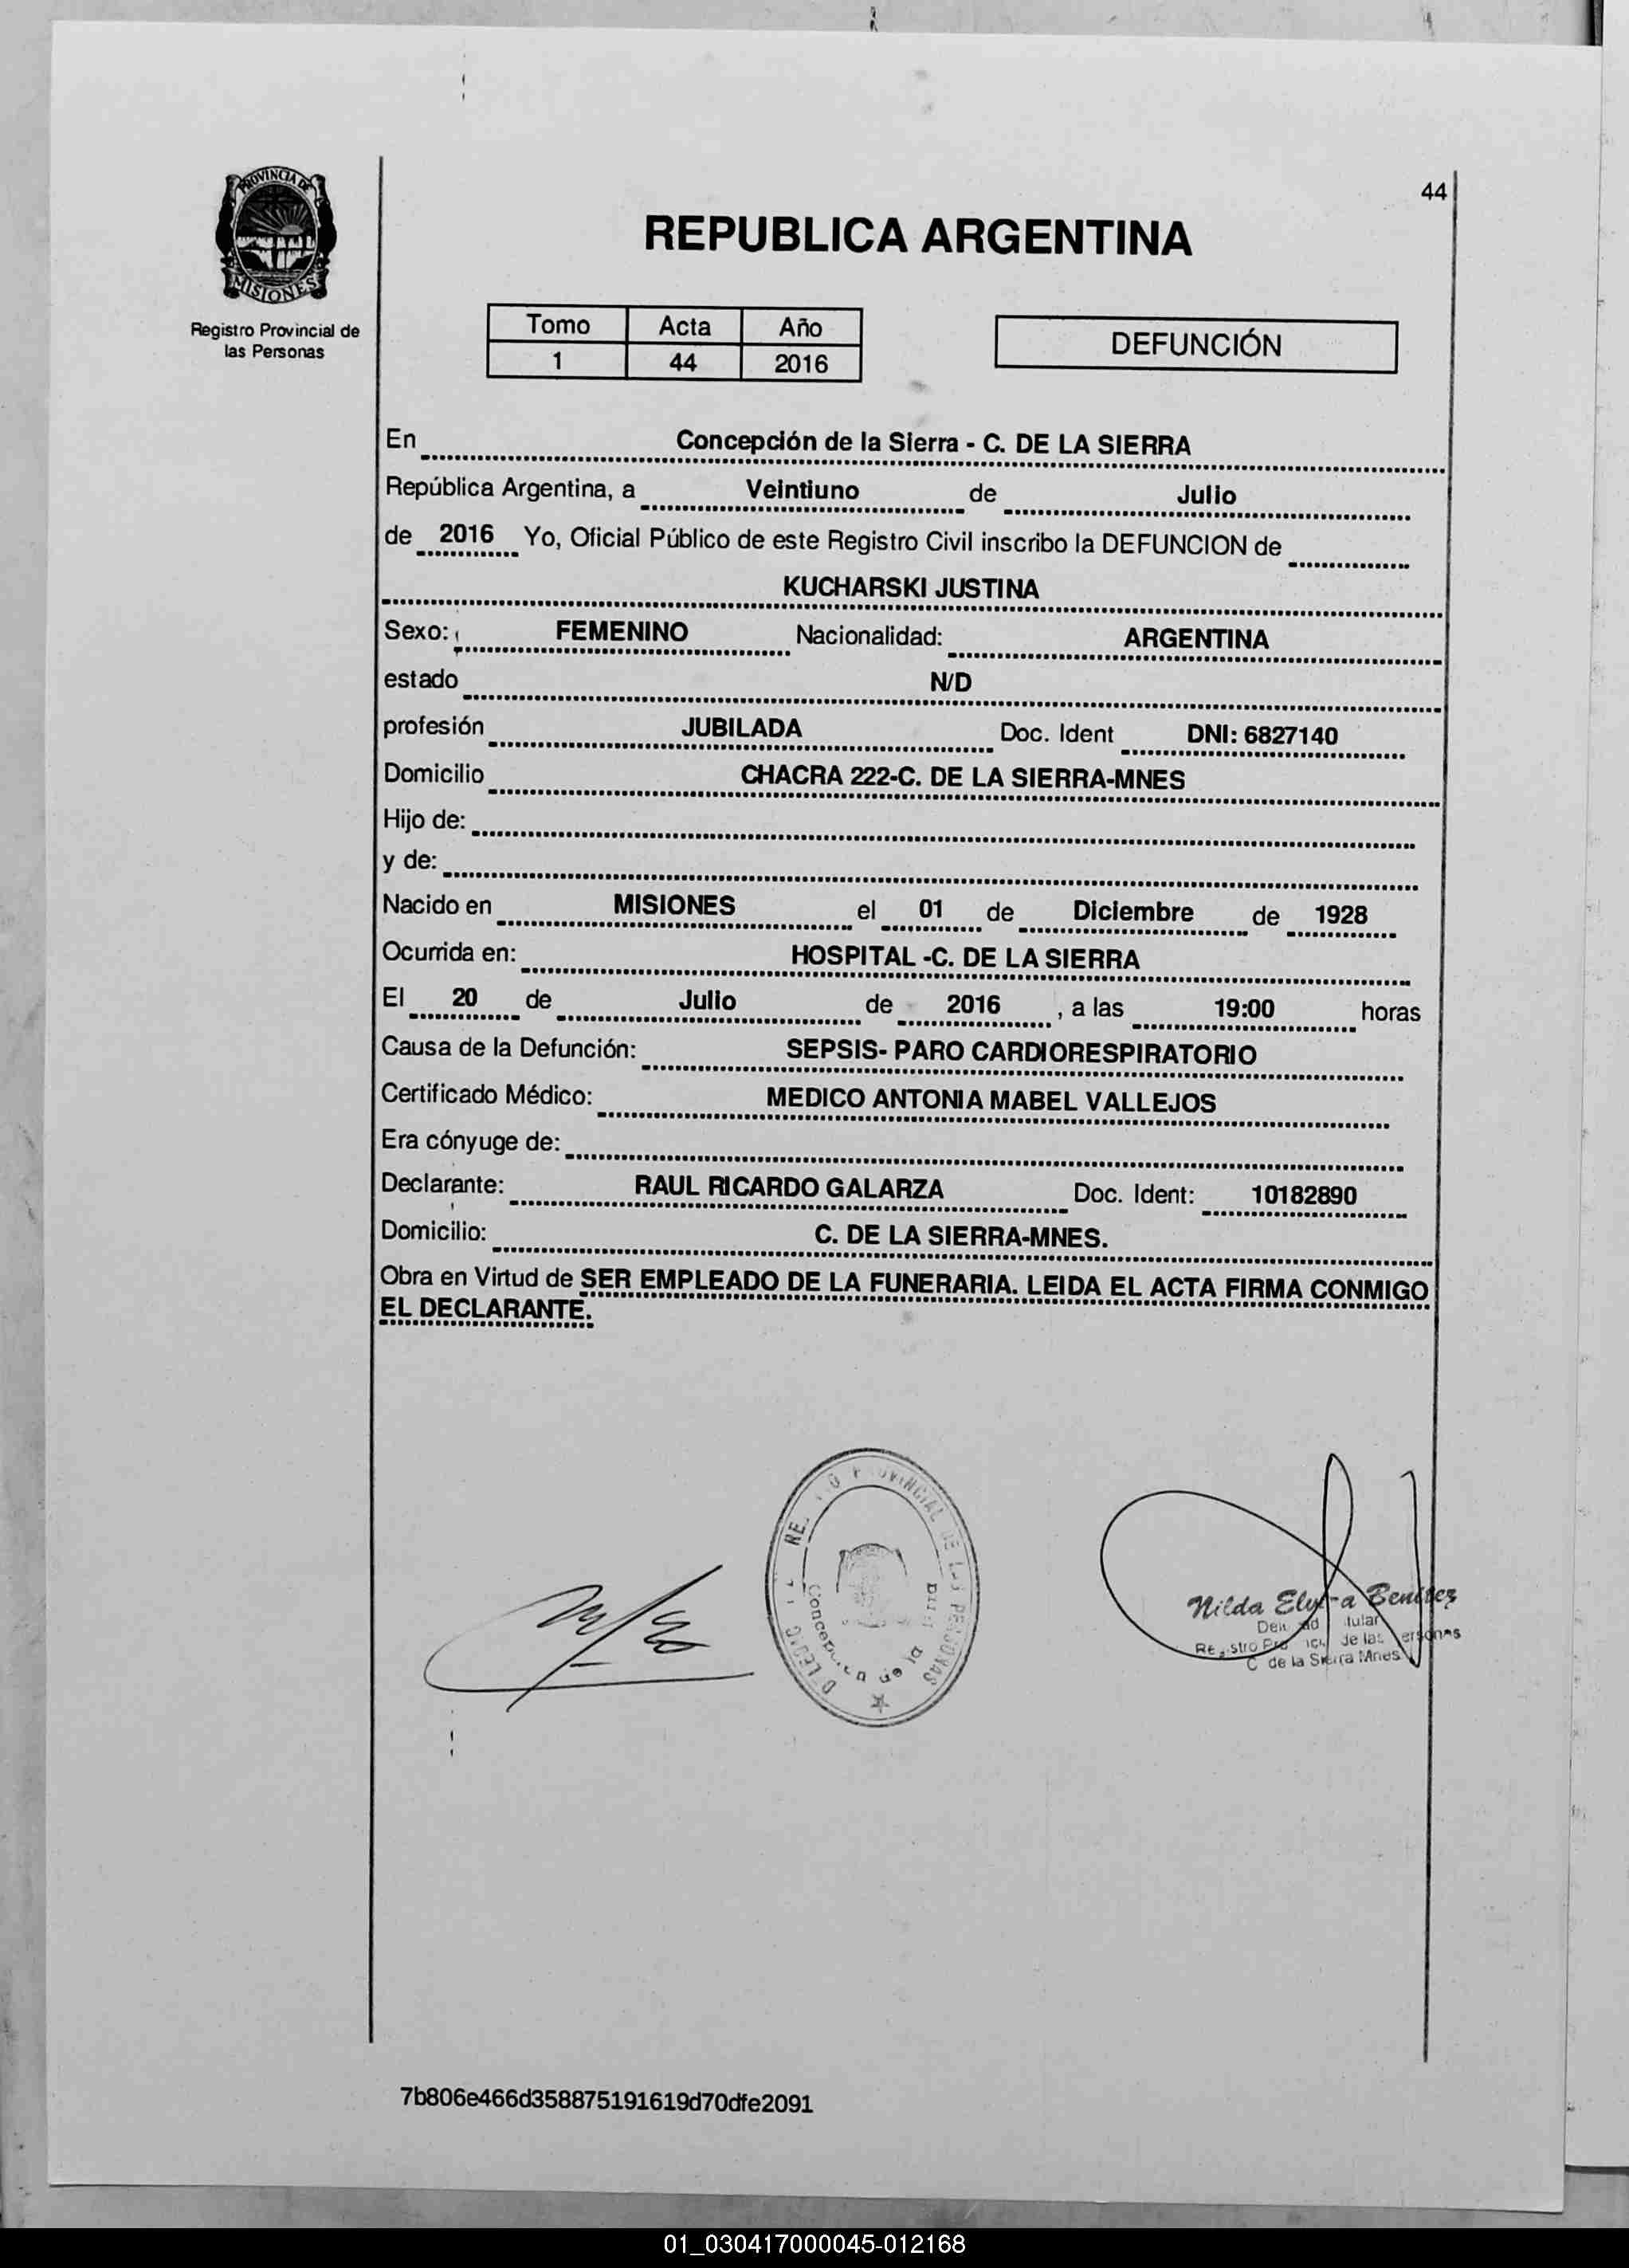 44
PROVINCIA DE
MISIONES
Registro Provincial de
las Personas
REPUBLICA ARGENTINA
Tomo Acta Año
1 44 2016
DEFUNCIÓN
En Concepción de la Sierra - C. DE LA SIERRA
República Argentina, a Veintiuno de Julio
de 2016 Yo, Oficial Público de este Registro Civil inscribo la DEFUNCION de
KUCHARSKI JUSTINA
Sexo: FEMENINO Nacionalidad: ARGENTINA
estado N/D
profesión JUBILADA Doc. Ident DNI: 6827140
Domicilio CHACRA 222-C. DE LA SIERRA-MNES
Hijo de:
y de:
Nacido en MISIONES el 01 de Diciembre de 1928
Ocurrida en: HOSPITAL -C. DE LA SIERRA
El 20 de Julio de 2016 , a las 19:00 horas
Causa de la Defunción: SEPSIS- PARO CARDIORESPIRATORIO
Certificado Médico: MEDICO ANTONIA MABEL VALLEJOS
Era cónyuge de:
Declarante: RAUL RICARDO GALARZA Doc. Ident: 10182890
Domicilio: C. DE LA SIERRA-MNES.
Obra en Virtud de SER EMPLEADO DE LA FUNERARIA. LEIDA EL ACTA FIRMA CONMIGO
EL DECLARANTE.
DE LAS PERSONAS
de la
Nilda Benítez
de las
C de la Sierra Mnes
7b806e466d358875191619d70dfe2091
01_030417000045-012168